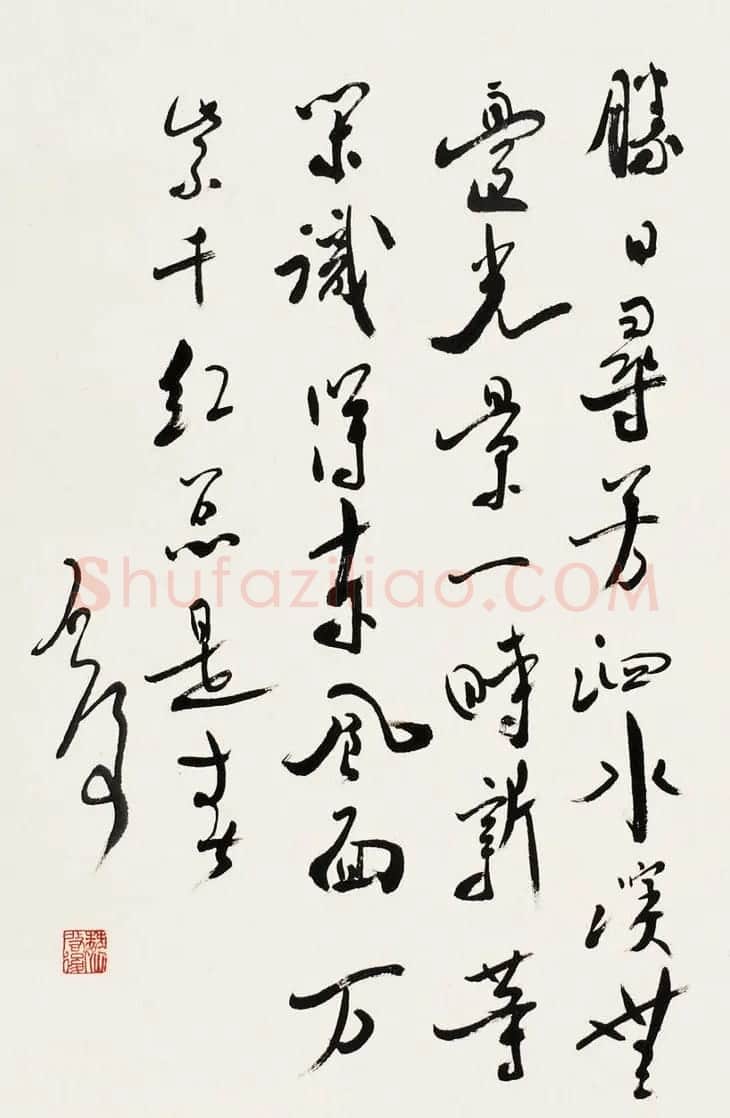 勝日尋芳泗水濱無
邊光景一時新等
閑識得東風面万
紫千紅总是春
启後
Shufaziliao.COM